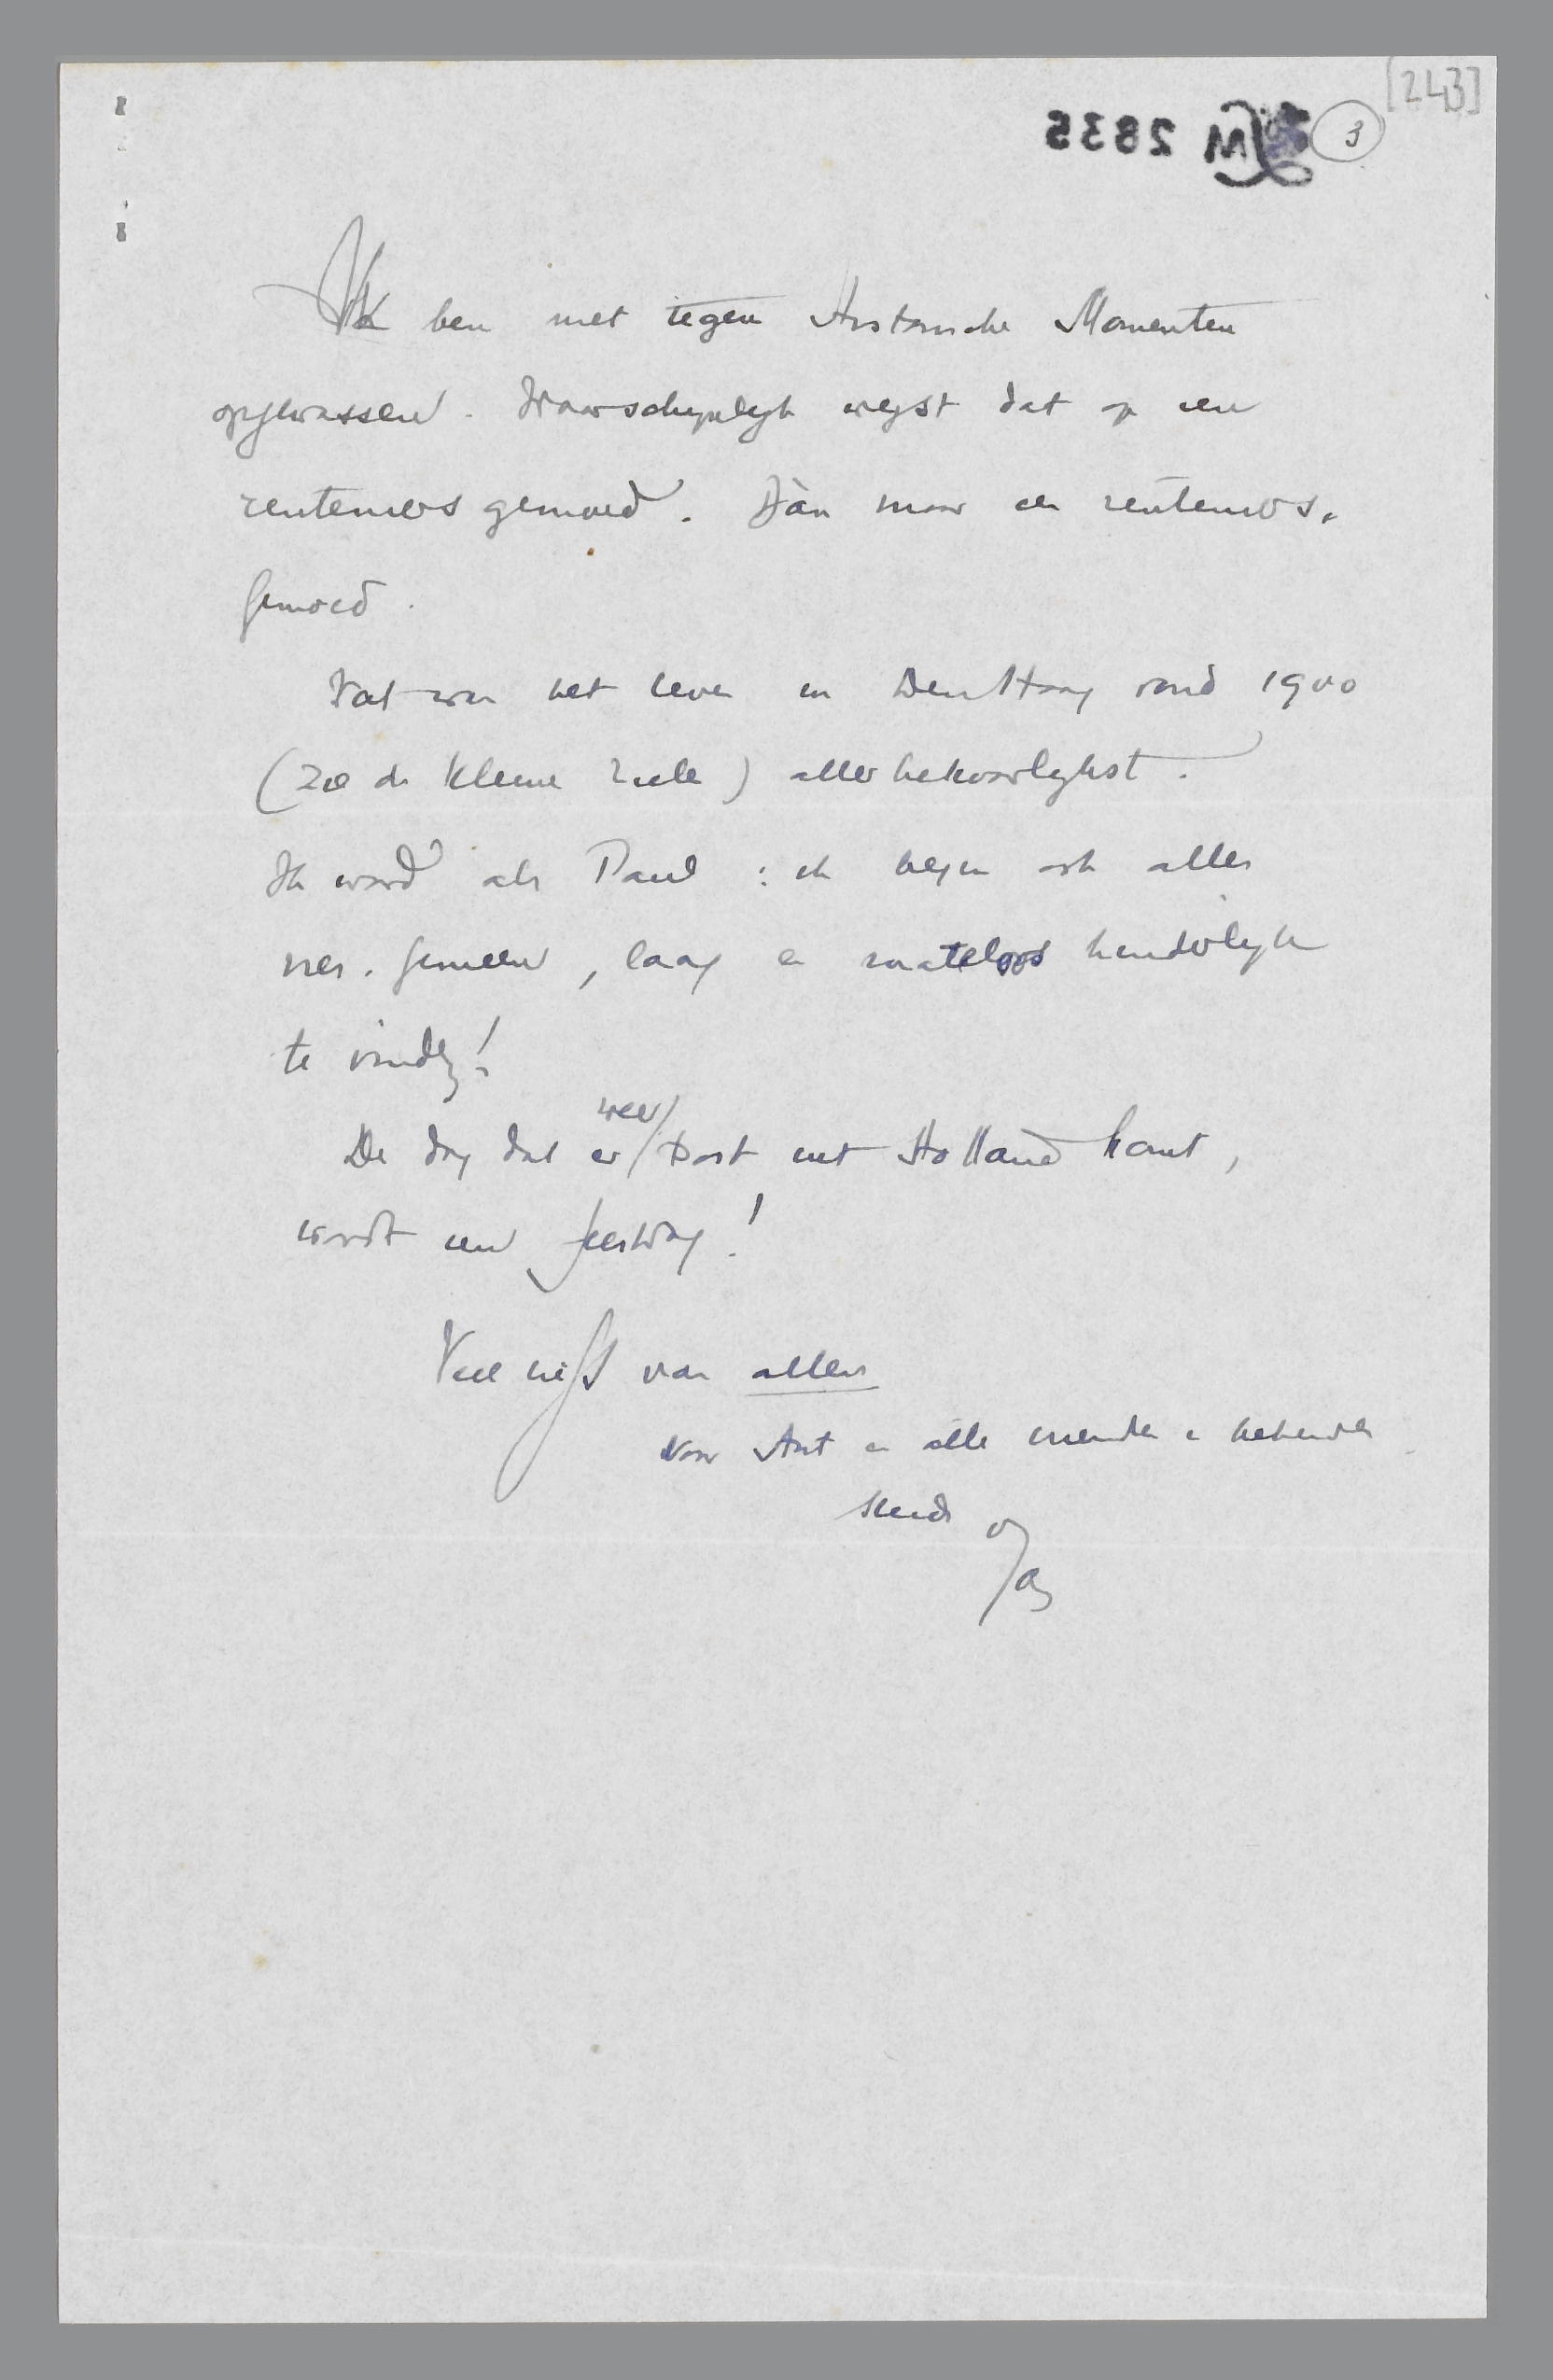 [243]
3
LM 2835
Ik ben niet tegen Historische Momenten
opgewassen. Waarschijnlijk wijst dat op een
renteniersgemoed. Dàn maar een renteniers-
gemoed.
Wat was het leven in Den Haag rond 1900
(zie de kleine ziele) allerbekoorlijkst.
Ik word als Paul: ik begin ook alles
vies, gemeen, laag en mateloos hinderlijk
te vinden!
De dag dat er weer Post uit Holland komt,
wordt een feestdag!
Veel liefs van allen
voor Ant en alle vrienden en bekenden
steeds
Jan